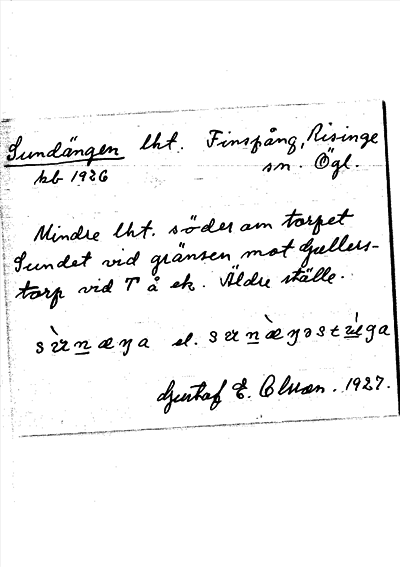 Sundängen lht. Finspång, Risinge
kb 1926 sn. Ögl.
Mindre lht. söder om torpet
Sundet vid gränsen mot Gellers-
torp vid T å ek. Äldre ställe.
el.
Gustaf E. 1927.